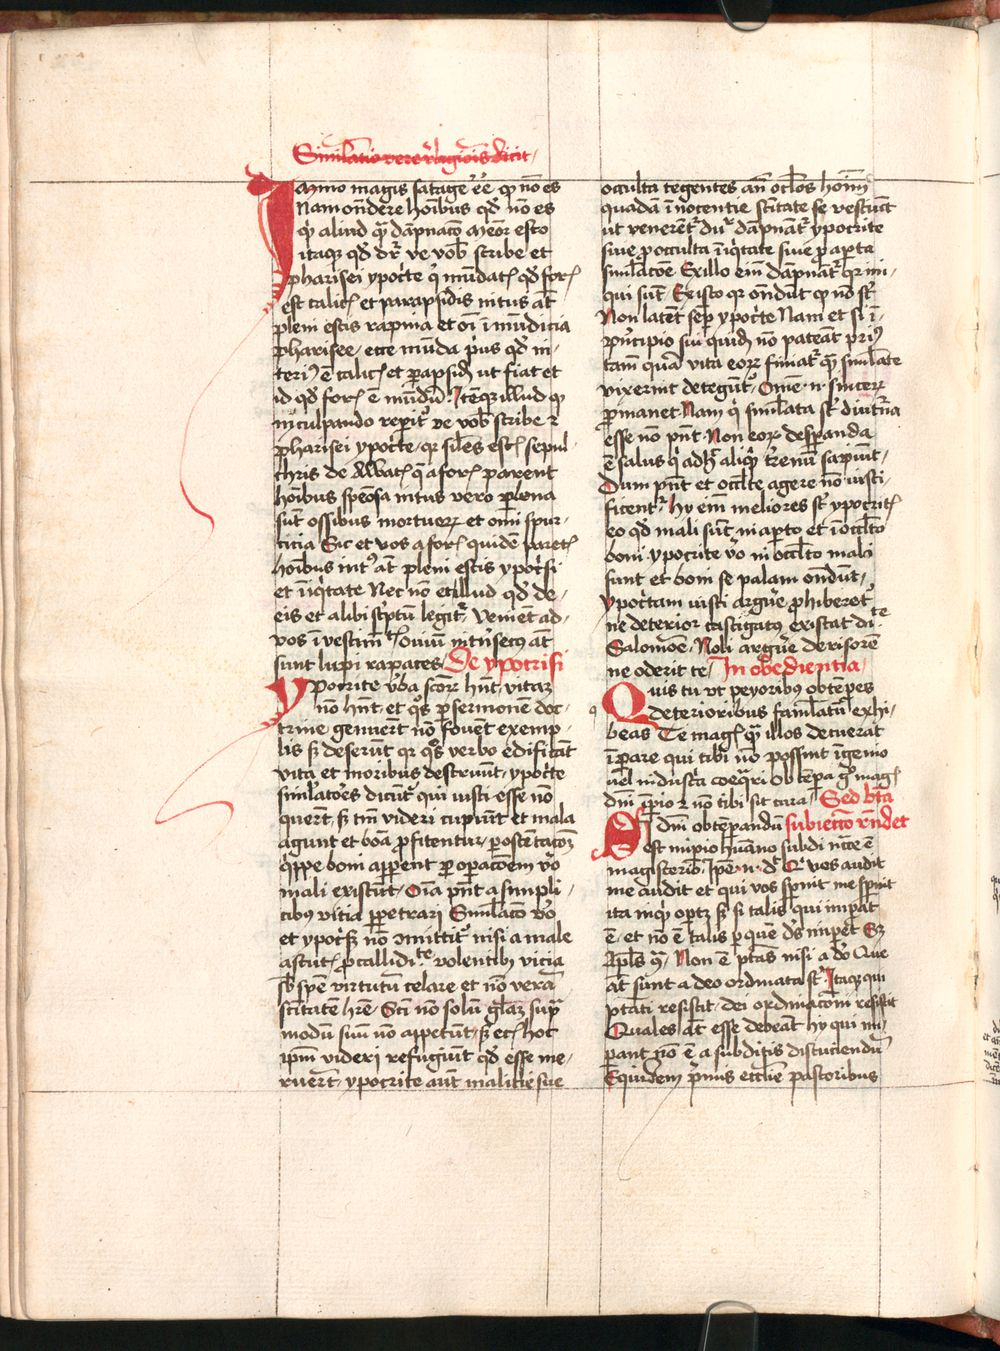 Simulatio vere religionis dicit
Immo magis satage e͞e qͥ no͞ es
Nam on͞dere ho͞ibus qd͛ no͞ es
qͥ aliud q͛ᵃ da͞pnac͞o meor esto
itaqꝫ qd͛ dr͛ ve vob͛ scribe et
pharisei ypoc͛te qͥ mu͞datꝭ qd͛ forꝭ
est calicꝭ et parapsidis intus at͞
pleni estis rapina et o͞i i͞mu͞dicia
pharisee ecce mu͞da p͛us qd͛ in-
teriꝰ e͞ calicꝭ et ꝑapsid͛ ut fiat et
id qd͛ forꝭ e͞ mu͞du͞ Ite͞qꝫ illud qͥ
in culpando reperit͛ ve vob͛ scribe ⁊
pharisei ypoc͛te qr sil͞es estꝭ sepul-
chris de albatꝭ q͛ a forꝭ parent
ho͞ibus spe͞osa intus vero plena
su͞t ossibus mortuoꝝ et omi spur-
ticia Sic et vos a forꝭ quide͞ paretꝭ
ho͞ibus intꝰ at͞ pleni estis ypoc͛si
et i͞iq͛tate Nec no͞ et illud qd͛ de
eis et alibi sc͛ptu͞ legit͛ Veniu͞t ad
vos i͞ vestim͞tꝭ ouiu͞ int͛nsecꝰ at͞
sunt lupi rapaces De ypocrisi
Ypocrite v͛ba sc͞oꝝ hn͞t vitaꝫ
no͞ hn͞t et q͛s ꝑ sermone͞ doc-
trine genueru͞t no͞ fouent exemp-
lis sꝫ deseru͞t qr q͛s verbo edificat͞
vita et moribus destruu͞t ypoc͛te
simulato͞es dicu͞t͛ qui iusti esse no͞
queru͞t sꝫ tm͞ videri cupiu͞t et mala
agunt et bo͞a ꝓfitentur ꝑ oste͞tac͞oꝫ
q͛ppe boni appare͞t ꝑ opac͞oem v͛o
mali existu͞t O͞ia pn͞t a simpli-
cibus vitia ꝑpetrari Simulac͞o v͛o
et ypoc͛s͛ no͞ ꝯmittit͛ nisi a male
astutꝭ ꝑ callidi͞te volentibꝫ vicia
sb͛ sp͞e virtutu͞ celare et no͞ vera͞
sc͞itate͞ hr͞e Sc͞i no͞ solu͞ gl͞aꝫ sup͛
modu͞ suu͞ no͞ appetu͞t sꝫ et hoc
ip͞m videri refugiu͞t qd͛ esse me-
ruer͞t ypocrite aut malicie sue
occulta tegentes an͞ oc͛los ho͞im
quada͞ i͞nocentie sc͞itate se vestiu͞t
ut venerent͛ du͞ da͞pnant͛ ypocrite
siue ꝓ occulta i͞iq͛tate siue ꝑ apta
simulac͞oe Ex illo eim da͞pnat͛ qr ini-
qui su͞t Ex isto qr on͞du͞t qͥ no͞ st͛
Non late͞t semꝑ ypoc͛te Nam et si i͞
pn͛cipio sui quid͛ no͞ patea͞t priꝰ
tam͞ qua͞ vita eoꝝ finiat͛ q͛ simulate
vixerint detegu͞t͛ Om͞e n͛ sinceꝝ
ꝑmanet Nam q͛ simulata st͛ diut͛na
esse no͞ pn͞t Non eoꝝ despera͞da
e͞ salus q͛ adhꝰ aliq͛ t͛renu͞ sapiu͞t
Dum pn͞t et occulte agere no͞ iusti-
ficent͛ hy eim meliores st͛ ypocritꝭ
eo qd͛ mali su͞t in apto et i͞ occulto
boni ypocrite v͛o in occulto mali
sunt et boni se palam on͞du͞t
ypoc͛tam iusti argue͞ prohiberet͛
ne deterior castigatꝰ existat di͞te
Salomo͞e Noli argue͞ derisore͞
ne oderit te In obedientia
Quis tu vt peyoribꝰ obte͞pes
deterioribus famulatu͞ exhi-
beas Te magꝭ q͛ᵃ illos decuerat
i͞perare qui tibi no͞ possunt i͞genio
uel industria coeq͛ri Obte͞pera gͦ magꝭ
dn͞i imꝑio ⁊ no͞ tibi sit cura Sed bta
subiectio rn͞det
Si dn͞i obte͞perandu͞
est impio hu͞ano subdi ncc͛e e͞
magisterio Ip͞e n͛ d͛r Qͥ vos audit
me audit et qui vos spnit me spnit
ita inq͛ oportꝫ sꝫ si talis qui imperat
e͞ et no͞ e͞ talis ꝑ que͞ d͛s imperet Sꝫ
Aplꝰs q͛ Non e͞ ptas nisi a d͛o Que
at͞ sunt a deo ordinata st͛ Itaqꝫ qui
ptati resistit dei ordinaconi resistit
Quales at͞ esse debea͞t hy qui im-
perant no͞ e͞ a subditis discuciendu͞
Equidem p͛mis ecclie pastoribus